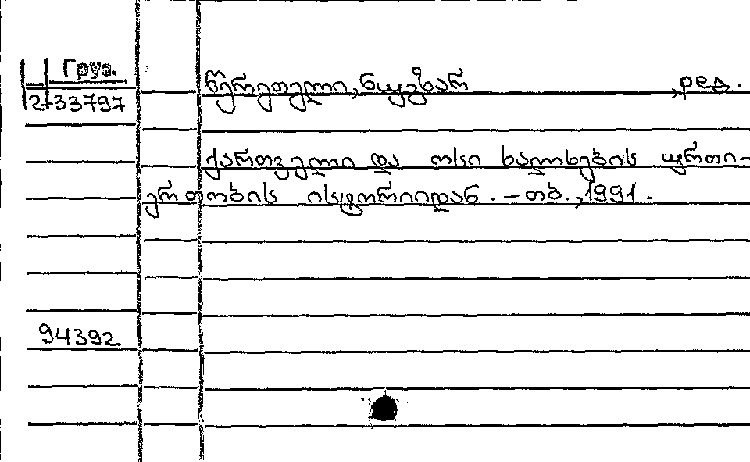 Груз.
2-33797
წერეთელი, ნუგზარ , ред.
ქართველი და ოსი ხალხების ურთი-
ერთობის ისტორიიდან. – თბ., 1991.
94392